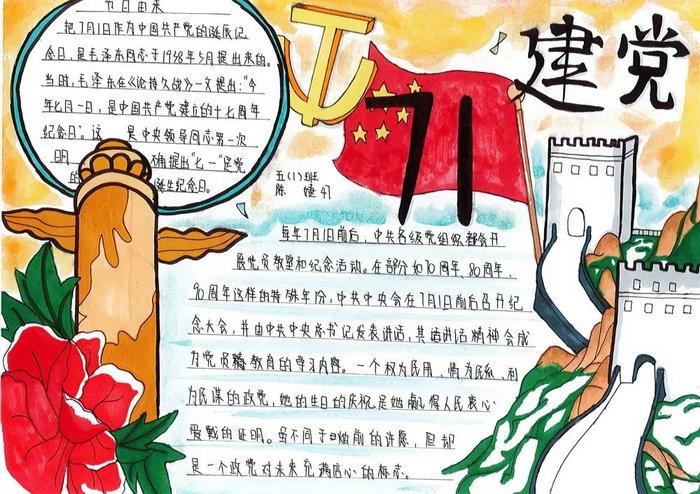 节日由来
把7月1日作为中国共产党的诞辰纪
念日,是毛泽东同志于1938年5月提出来的。
当时,毛泽东在《论持久战》一文提出:"今
年七月一日,是中国共产党建立的十七周年
纪念日"。这 是中央领导同志第一次
明 确提出"七一"是党
的 诞生纪念日。
建党
71
五(1)班
陈 婕 41
每年7月1日前后,中共各级党组织都会开
展党员教塑和纪念活动。在部分如70周年、80周年、
90周年这样的特殊年份,中共中央会在7月1日前后召开纪
念大会,并由中共中央总书记发表讲话,其语讲话精神会成
为党员精教育的学习内容。一个权为民用、情为民系、利
为民谋的政党,她的生日的庆祝是她赢得人民衷心
爱戴的证明。虽不同于 前的许愿,但却
是一个政党对未来充满信心的标志。